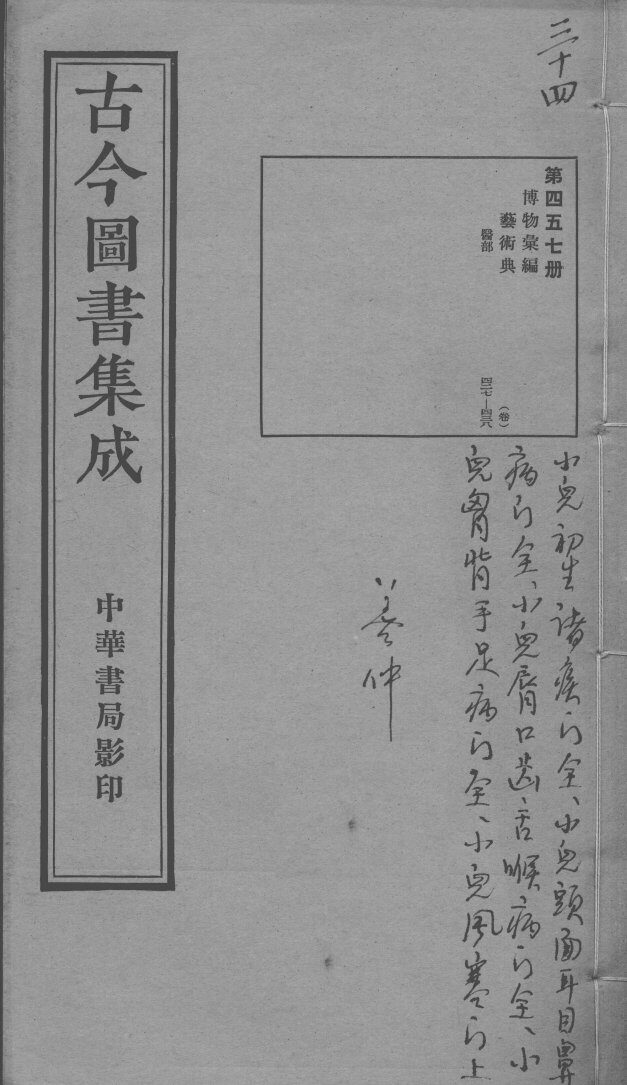 三十四
第四五七册
博物彙編
藝術典
醫部
(卷)
四二七—四二八
小兒初生諸疾門全、小兒頭面耳目鼻
病門全、小兒唇口齒舌喉病門全、小
兒胷背手足病門全、小兒風寒門上
仲
古今圖書集成
中華書局影印